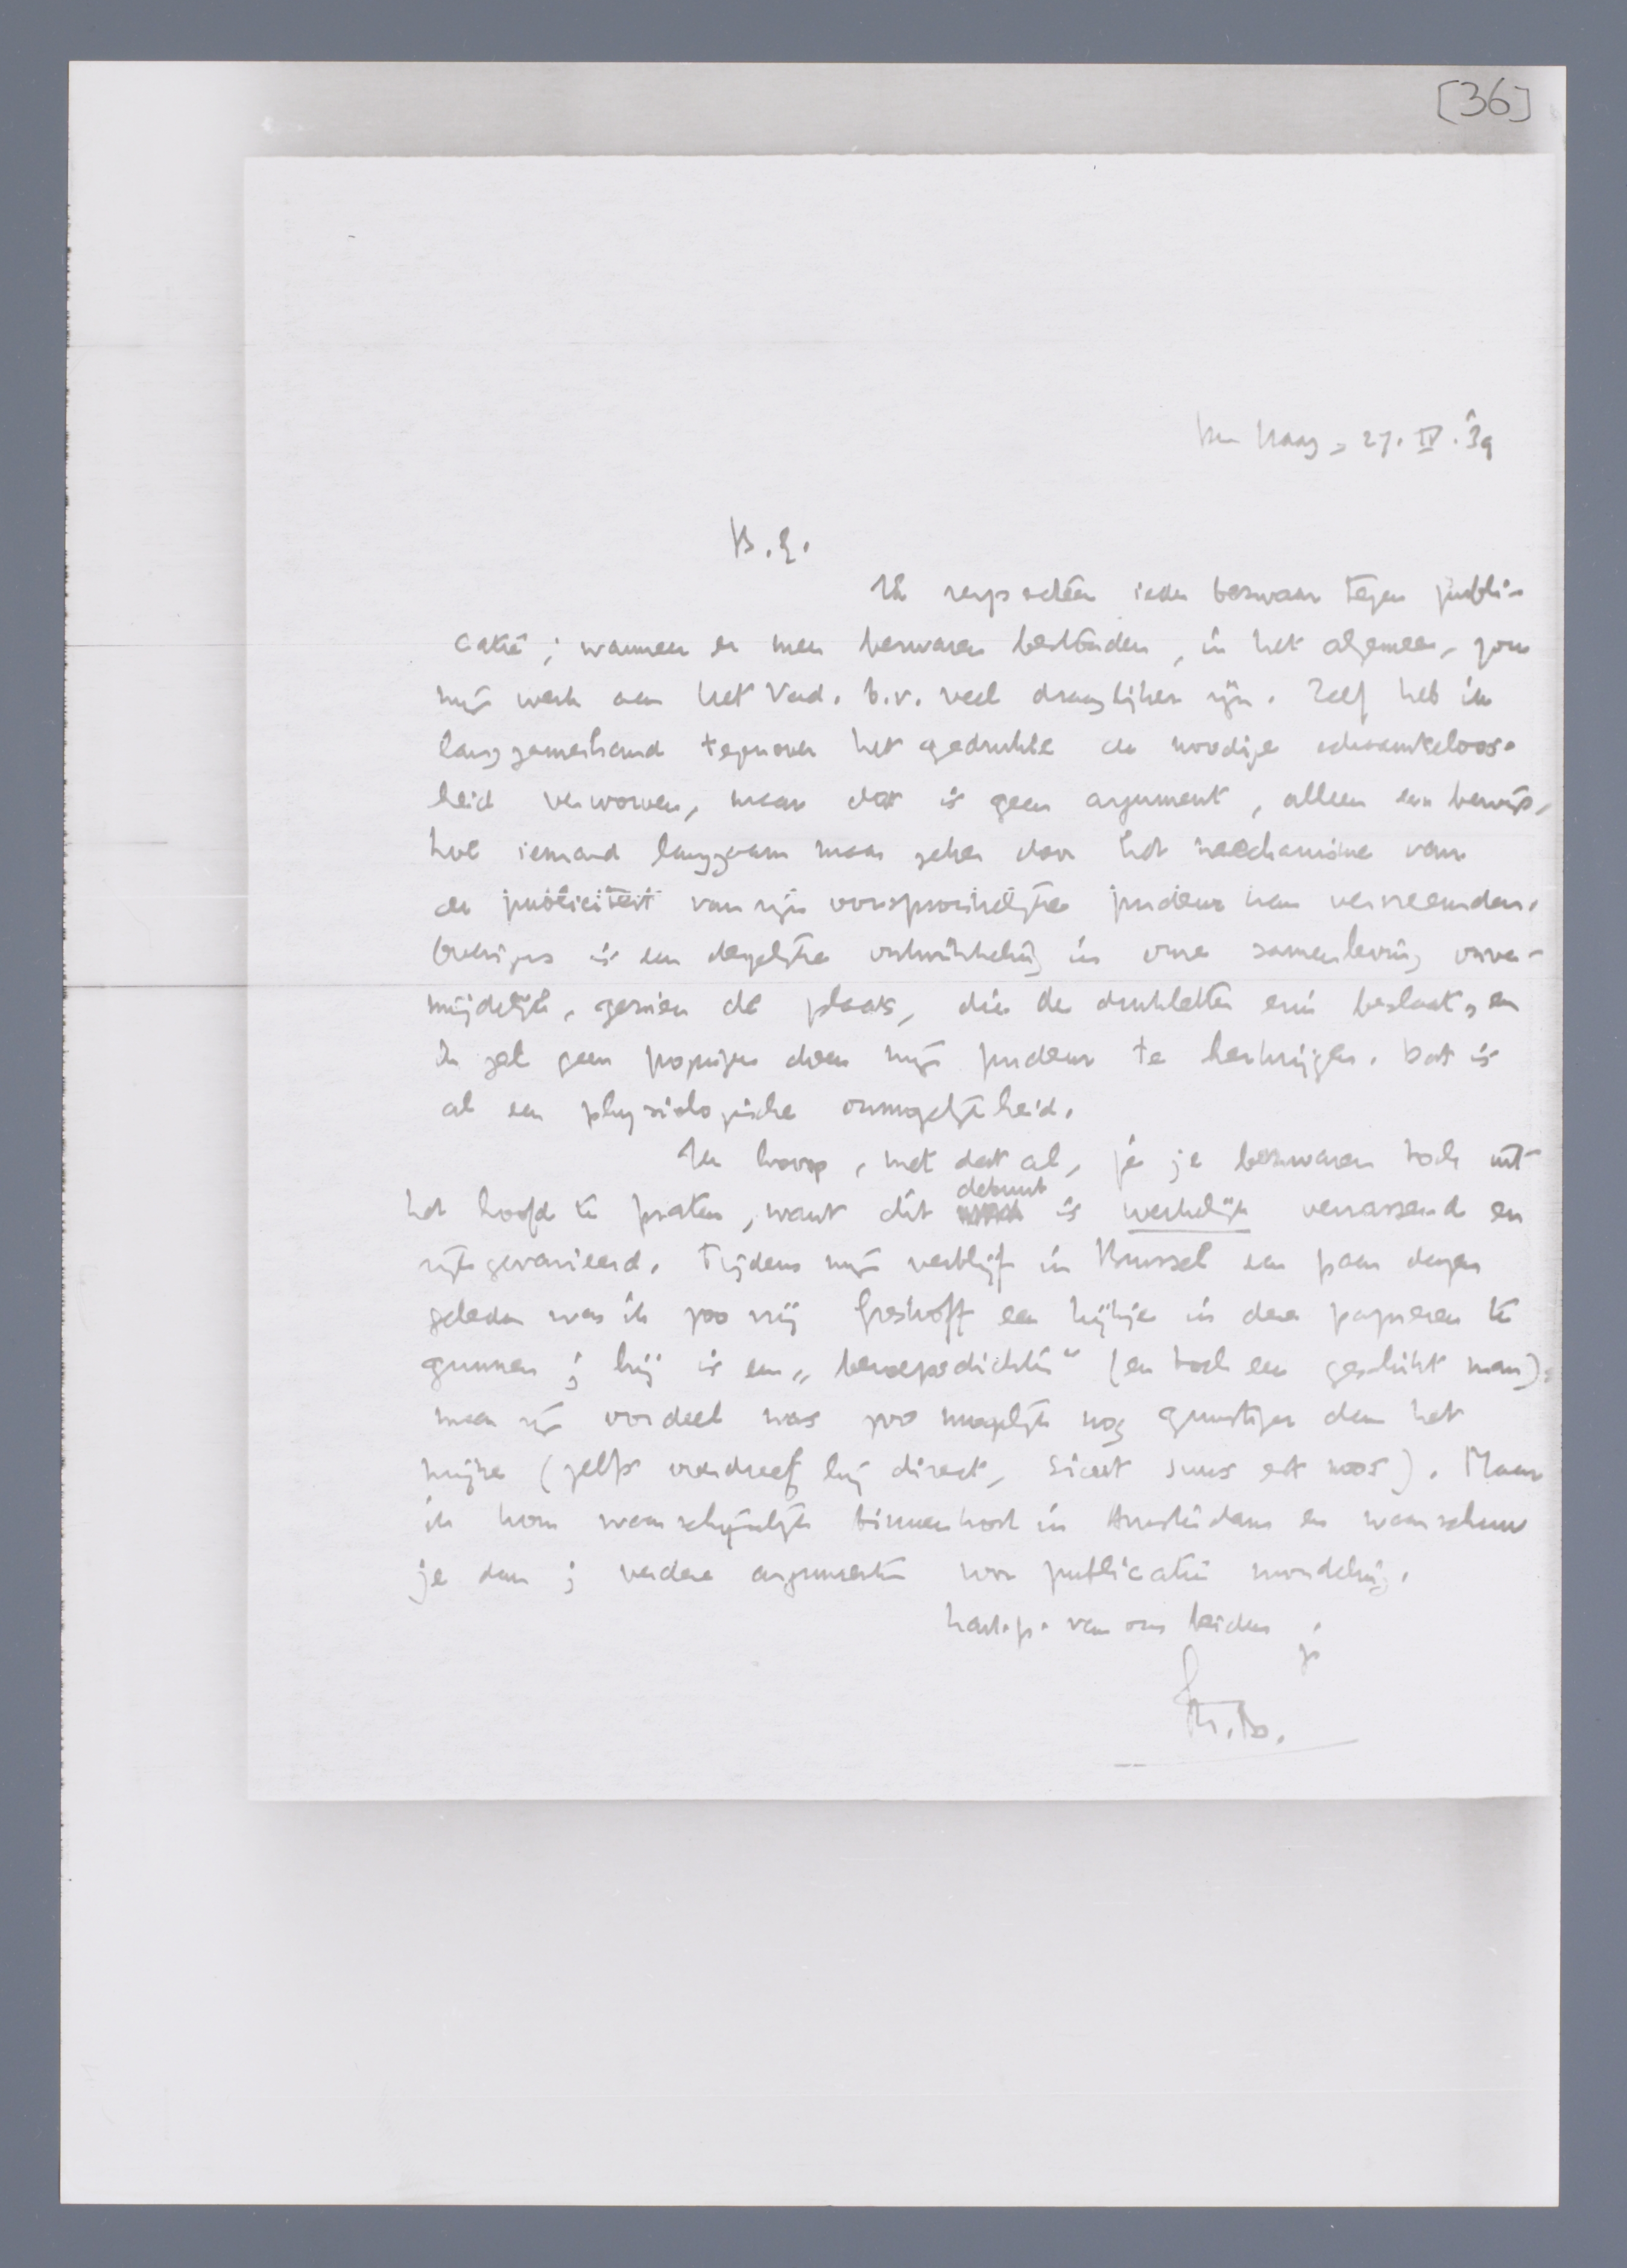 [36]
Den Haag, 27. IV. '39
B. E.
Ik respecteer ieder bezwaar tegen publi-
catie; wanneer er meer bezwaren bestonden, in het algemeen, zou
mijn werk aan het Vad. b.v. veel draaglijker zijn. Zelf heb ik
langzamerhand tegenover het gedrukte de noodige schaamteloos-
heid verworven, maar dat is geen argument, alleen een bewijs,
hoe iemand langzaam maar zeker door het mechanisme van
de publiciteit van zijn oorspronkelijke pudeur kan vervreemden.
Overigens is een dergelijke ontwikkeling in onze samenleving onver-
mijdelijk, gezien de plaats, die de drukletter erin beslaat, en
ik zal geen pogingen doen mijn pudeur te herkrijgen. Dat is
al een physiologische onmogelijkheid.
Ik hoop, met dat al, je je bezwaren toch uit
het hoofd te praten, want dit debuut is werkelijk verrassend en
rijk gevarieerd. Tijdens mijn verblijf in Brussel een paar dagen
geleden was ik zoo vrij Greshoff een kijkje in deze papieren te
gunnen; hij is een „beroepsdichter" (en toch een geschikt man);
maar zijn oordeel was zoo mogelijk nog gunstiger dan het
mijne (zelfs overdreef hij direct, sicut suus est mos). Maar
ik kom waarschijnlijk binnenkort in Amsterdam en waarschuw
je dan; verdere argumenten voor publicatie mondeling.
Hart. gr. van ons beiden
je
M. t. B.